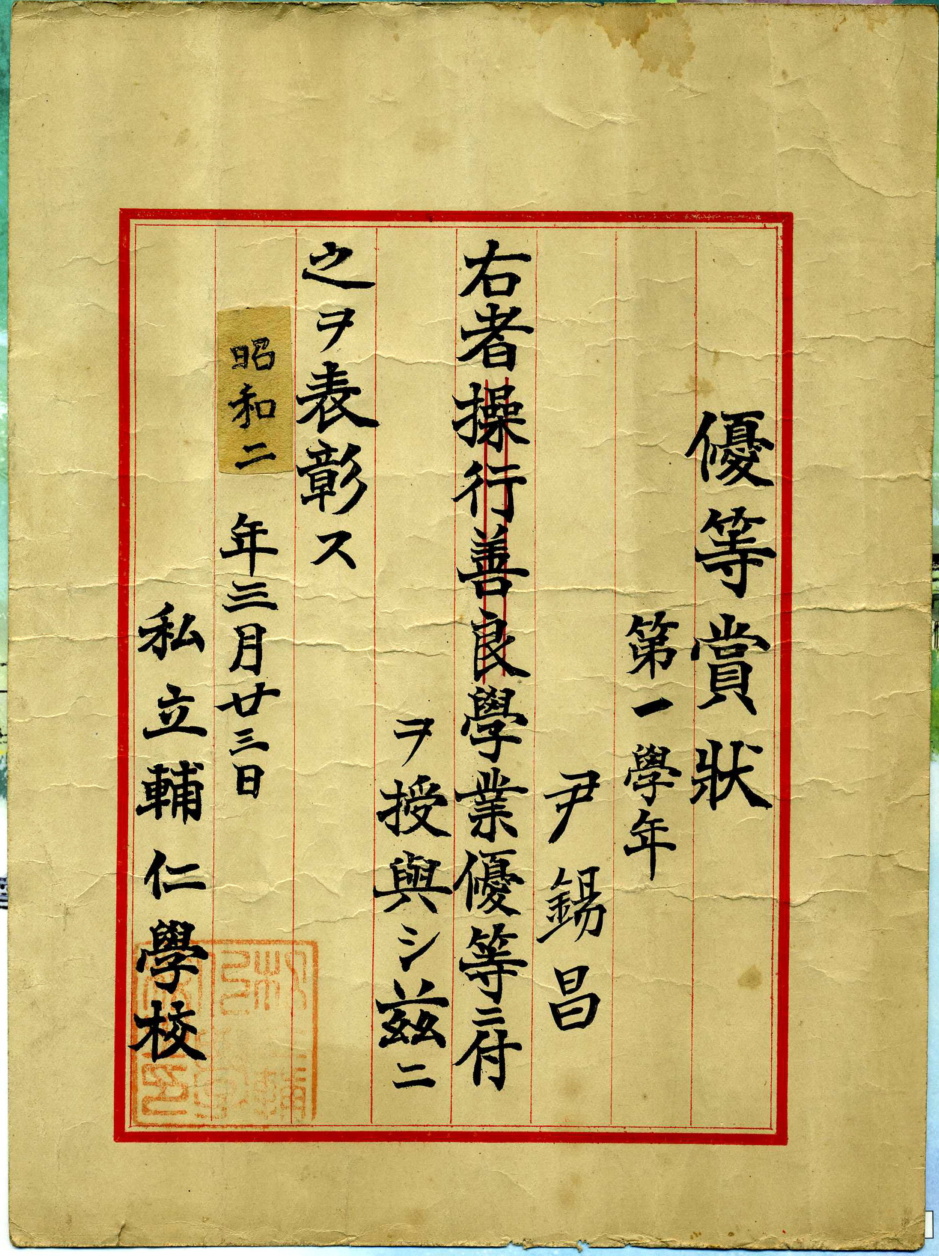 優等賞狀
第一學年
尹錫昌
右者操行善良學業優等ニ付
ヲ授與シ茲ニ
之ヲ表彰ス
昭和二年三月廿三日
私立輔仁學校